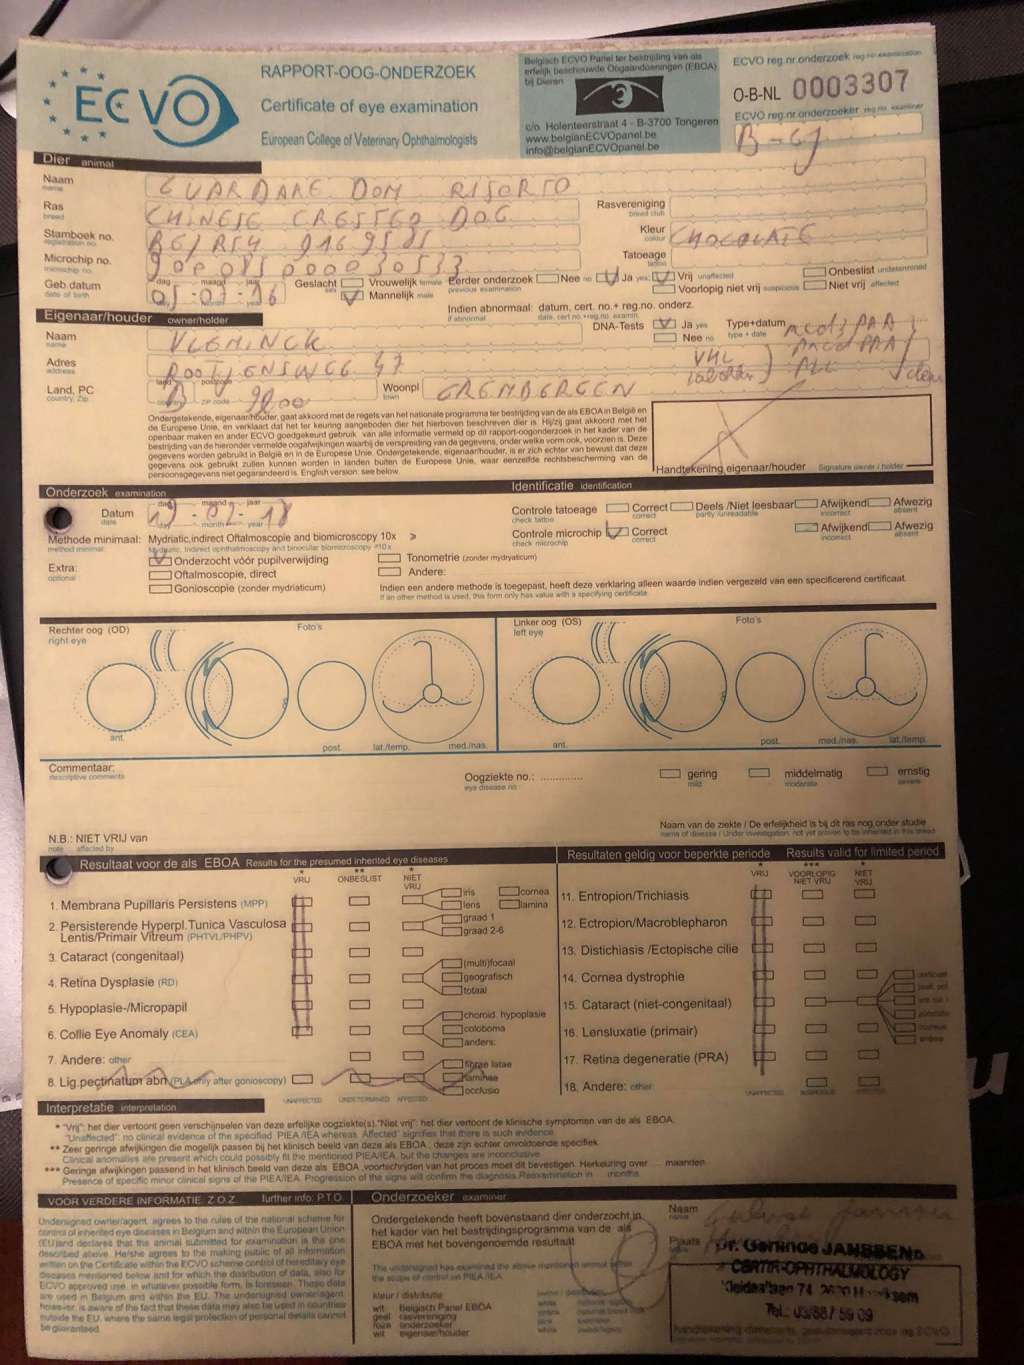 ECVO
RAPPORT-OOG-ONDERZOEK
Certificate of eye examination
European College of Veterinary Ophthalmologists
Belgisch ECVO Panel ter bestrijding van als
erfelijk beschouwde Oogaandoeningen (EBOA)
bij Dieren
c/o Holenteerstraat 4 - B-3700 Tongeren
www.belgianECVOpanel.be
info@belgianECVOpanel.be
ECVO reg.nr.onderzoek reg.no. examination
O-B-NL 0003307
ECVO reg.nr.onderzoeker reg.no. examiner
Dier animal
Naam GUARDARE DOM RISORTO
name
Ras CHINESE CRESTED DOG Rasvereniging
breed breed club
Stamboek no. Kleur CHOCOLATE
registration no. colour
Microchip no. Tatoeage
microchip no. tattoo
Geb.datum dag maand jaar Geslacht Vrouwelijk female Eerder onderzoek Nee no Ja yes: Vrij unaffected Onbeslist undetermined
date of birth 05-07-16 sex Mannelijk male previous examination Voorlopig niet vrij suspicious Niet vrij affected
Indien abnormaal: datum, cert. no.+ reg.no. onderz.
if abnormal date, cert no.+reg.no. examin.
Eigenaar/houder owner/holder
DNA-Tests Ja yes Type+datum
Nee no type + date
Naam VLEMINCK
name
Adres
address
Land, PC B Woonpl GREMBERGEN
country, Zip town
Ondergetekende, eigenaar/houder, gaat akkoord met de regels van het nationale programma ter bestrijding van de als EBOA in België en
de Europese Unie, en verklaart dat het ter keuring aangeboden dier het hierboven beschreven dier is. Hij/zij gaat akkoord met het
openbaar maken en ander ECVO goedgekeurd gebruik van alle informatie vermeld op dit rapport-oogonderzoek in het kader van de
bestrijding van de hieronder vermelde oogafwijkingen waarbij de verspreiding van de gegevens, onder welke vorm ook, voorzien is. Deze
gegevens worden gebruikt in België en in de Europese Unie. Ondergetekende, eigenaar/houder, is er zich echter van bewust dat deze
gegevens ook gebruikt zullen kunnen worden in landen buiten de Europese Unie, waar eenzelfde rechtsbescherming van de
persoonsgegevens niet gegarandeerd is. English version: see below.
Handtekening eigenaar/houder Signature owner / holder
Onderzoek examination
Identificatie identification
Datum dag maand jaar
date month year
Controle tatoeage Correct Deels /Niet leesbaar Afwijkend Afwezig
check tattoo correct partly /unreadable incorrect absent
Methode minimaal: Mydriatic,indirect Oftalmoscopie and biomicroscopy 10x
method minimal: Mydriatic, Indirect ophthalmoscopy and binocular biomicroscopy ≥10x
Controle microchip Correct Afwijkend Afwezig
check microchip correct incorrect absent
Extra: Onderzocht vóór pupilverwijding Tonometrie (zonder mydryaticum)
optional Oftalmoscopie, direct Andere:
Gonioscopie (zonder mydriaticum)
Indien een andere methode is toegepast, heeft deze verklaring alleen waarde indien vergezeld van een specificerend certificaat.
If an other method is used, this form only has value with a specifying certificate.
Rechter oog (OD) Foto's
right eye
ant. post. lat./temp. med./nas.
Linker oog (OS) Foto's
left eye
ant. post. med./nas. lat./temp.
Commentaar:
descriptive comments
Oogziekte no.: ............. gering middelmatig ernstig
eye disease no mild moderate severe
N.B.: NIET VRIJ van
note affected by
Naam van de ziekte / De erfelijkheid is bij dit ras nog onder studie
name of disease / Under investigation, not yet proven to be inherited in this breed
Resultaat voor de als EBOA Results for the presumed inherited eye diseases
VRIJ ONBESLIST NIET VRIJ
1. Membrana Pupillaris Persistens (MPP) iris cornea lens lamina
2. Persisterende Hyperpl.Tunica Vasculosa
Lentis/Primair Vitreum (PHTVL/PHPV) graad 1 graad 2-6
3. Cataract (congenitaal)
4. Retina Dysplasie (RD) (multi)focaal geografisch totaal
5. Hypoplasie-/Micropapil
6. Collie Eye Anomaly (CEA) choroid. hypoplasie coloboma anders:
7. Andere: other
8. Lig.pectinatum abn (PLA only after gonioscopy) fibrae latae laminae occlusio
UNAFFECTED UNDETERMINED AFFECTED
Resultaten geldig voor beperkte periode Results valid for limited period
VRIJ VOORLOPIG NIET VRIJ NIET VRIJ
11. Entropion/Trichiasis
12. Ectropion/Macroblepharon
13. Distichiasis /Ectopische cilie
14. Cornea dystrophie
15. Cataract (niet-congenitaal)
16. Lensluxatie (primair)
17. Retina degeneratie (PRA)
18. Andere: other
Interpretatie interpretation
* "Vrij": het dier vertoont geen verschijnselen van deze erfelijke oogziekte(s)."Niet vrij": het dier vertoont de klinische symptomen van de als EBOA.
"Unaffected": no clinical evidence of the specified PIEA/IEA whereas "Affected" signifies that there is such evidence.
** Zeer geringe afwijkingen die mogelijk passen bij het klinisch beeld van deze als EBOA ; deze zijn echter onvoldoende specifiek.
Clinical anomalies are present which could possibly fit the mentioned PIEA/IEA, but the changes are inconclusive.
*** Geringe afwijkingen passend in het klinisch beeld van deze als EBOA ,voortschrijden van het proces moet dit bevestigen. Herkeuring over .... maanden
Presence of specific minor clinical signs of the PIEA/IEA. Progression of the signs will confirm the diagnosis.Reexamination in .... months.
VOOR VERDERE INFORMATIE Z.O.Z. further info: P.T.O.
Undersigned owner/agent, agrees to the rules of the national scheme for
control of inherited eye diseases in Belgium and within the European Union
(EU)and declares that the animal submitted for examination is the one
described above. He/she agrees to the making public of all information
written on the Certificate within the ECVO scheme control of hereditary eye
diseases mentioned below and for which the distribution of data, also for
ECVO approved use, in whatever possible form, is foreseen. These data
are used in Belgium and within the EU. The undersigned owner/agent,
however, is aware of the fact that these data may also be used in countries
outside the EU, where the same legal protection of personal details cannot
be guaranteed.
Onderzoeker examiner
Ondergetekende heeft bovenstaand dier onderzocht in
het kader van het bestrijdingsprogramma van de als
EBOA met het bovengenoemde resultaat
The undersigned has examined the above mentioned animal within
the scope of control on PIEA /IEA
kleur / distributie
wit Belgisch Panel EBOA
geel rasvereniging
roze onderzoeker
wit eigenaar/houder
Naam
name
Plaats
Dr. Gerlinde JANSSENS
CERTIF-OPHTHALMOLOGY
Tel.: 03/887 59 09